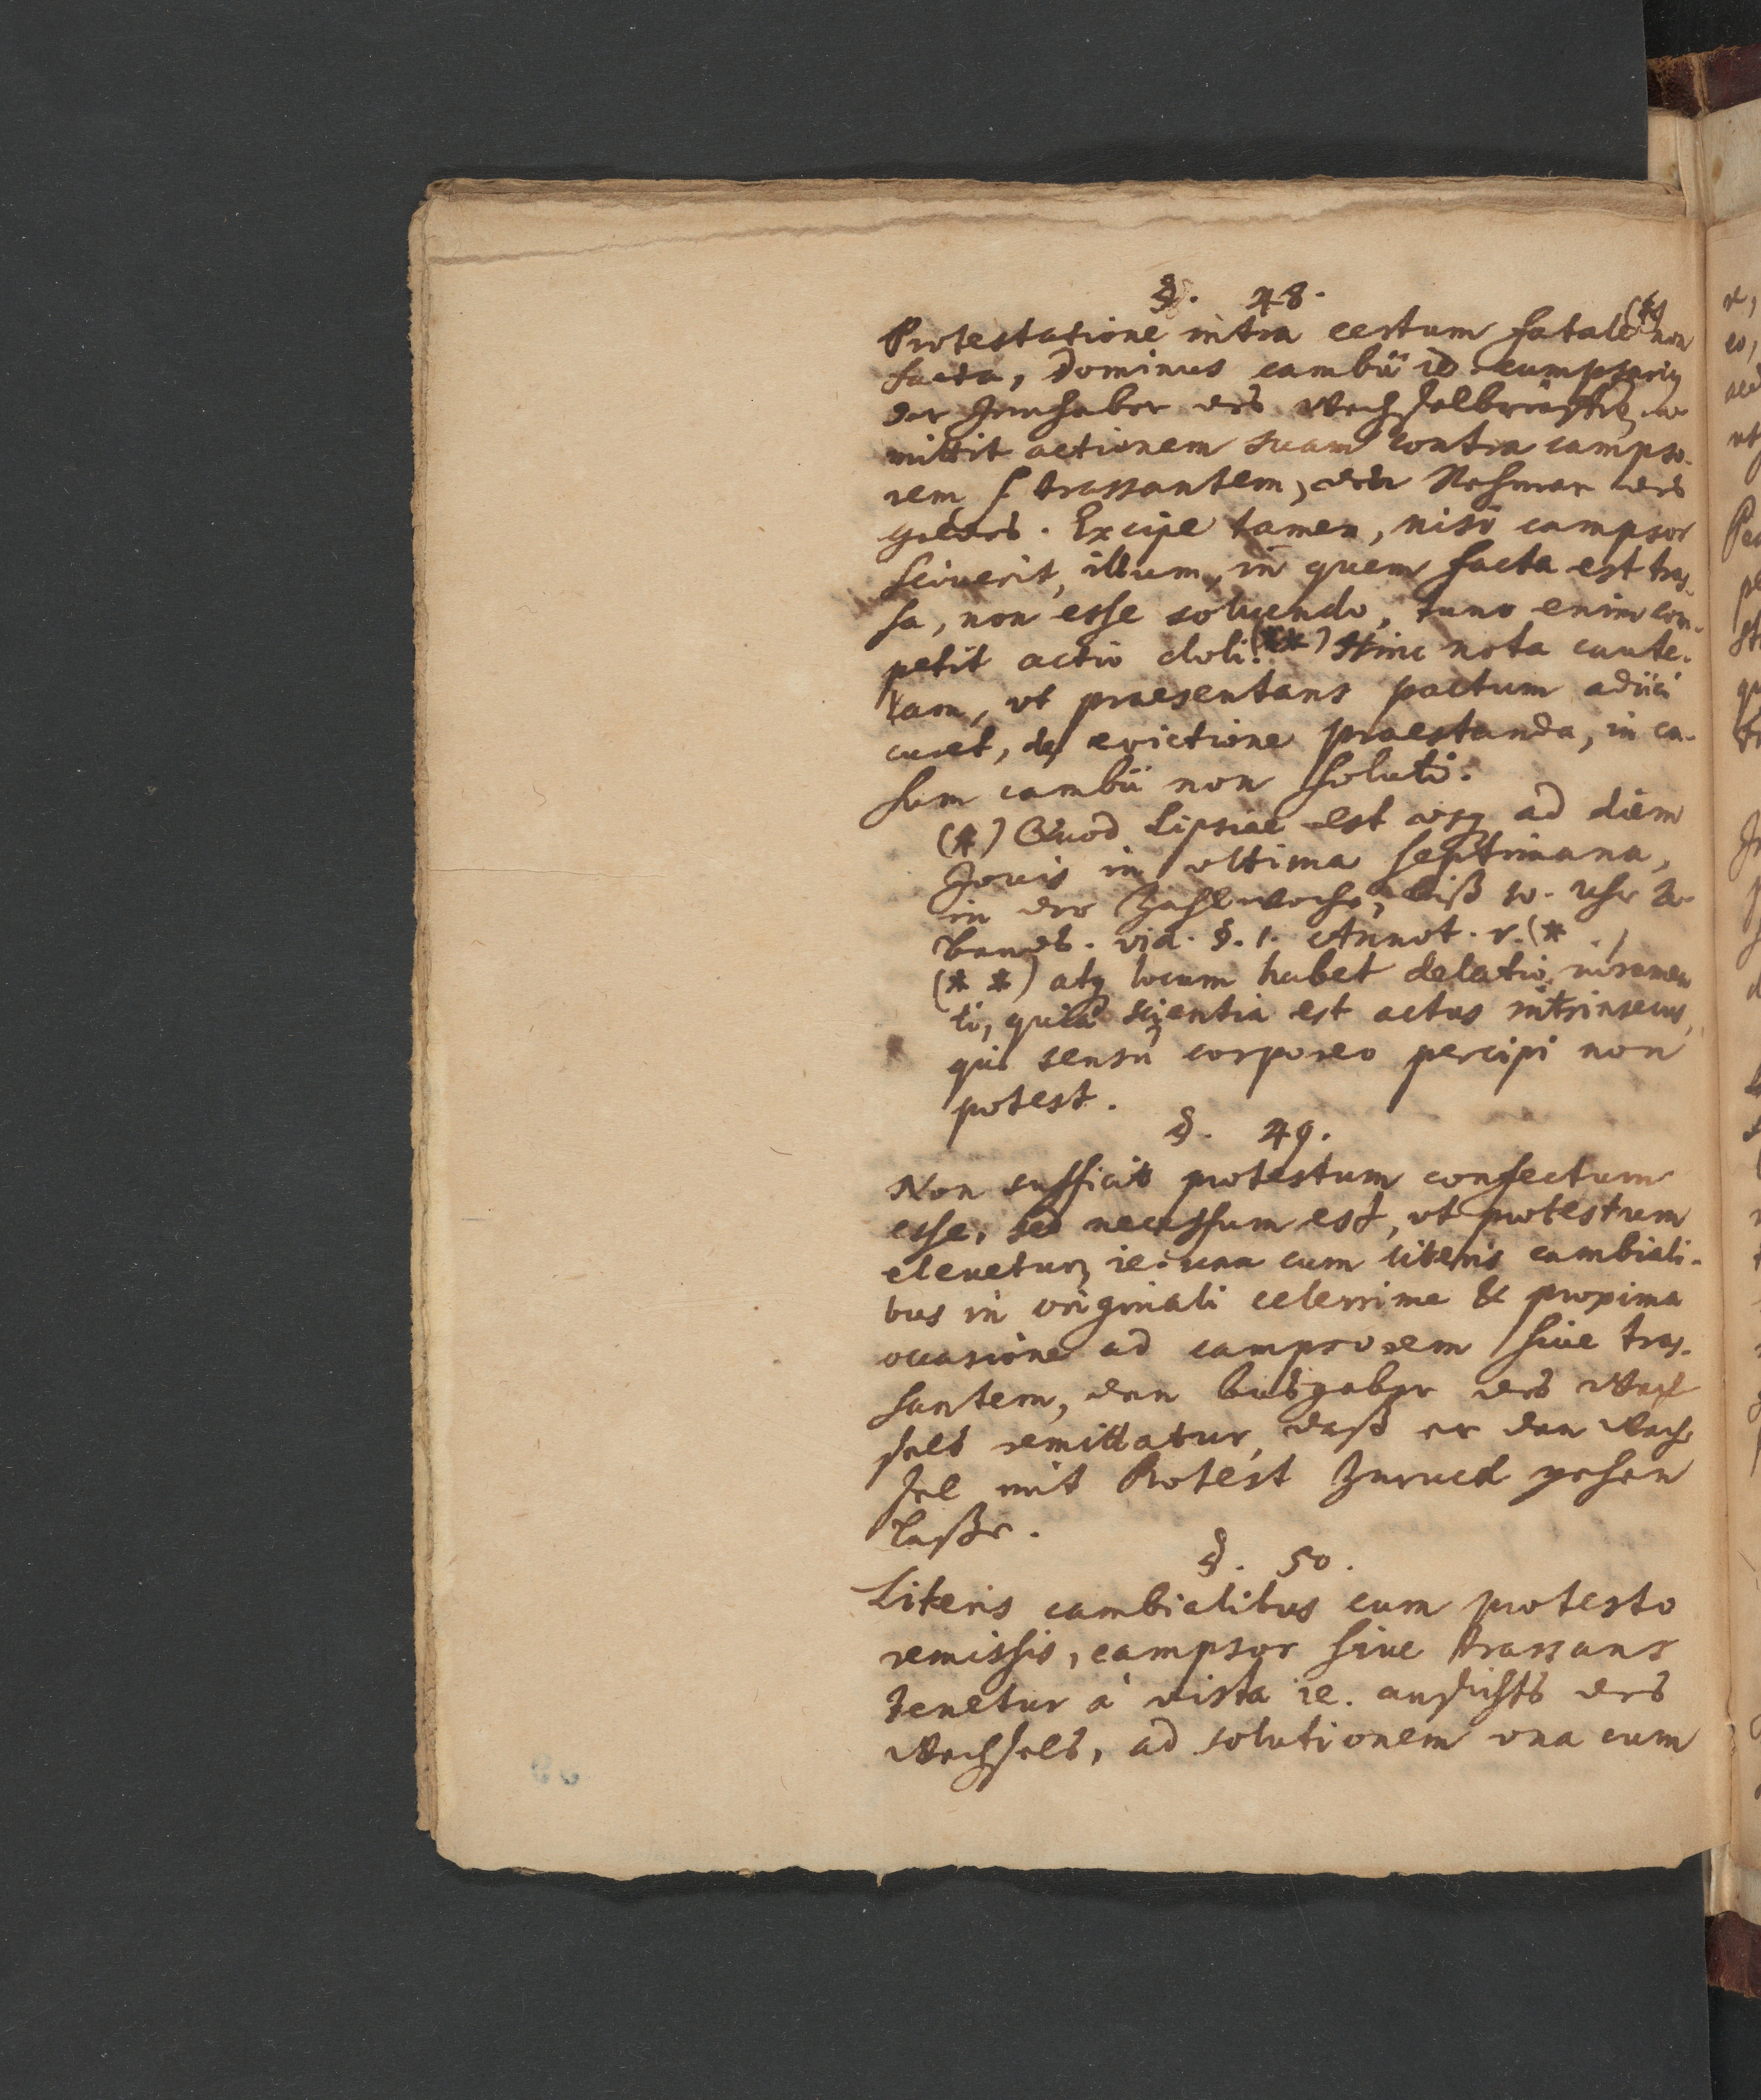 §. 48.
Protestatione intra certum fatale (*) non
facta, Dominus cambii id. campsarius
der Innhaber des Wechselbrieffes, a-
mittit actionem suam contra campso-
rem s. trassantem, den Nehmer des
geldes. Excipe tamen, nisi campsor
sciverit, illum, in quem facta est tras-
sa, non esse solvendo, tunc enim com-
petit actio doli. (**) Hinc nota caute-
lam, vt praesentans pactum adiici
curet, de evictione praestanda, in ca-
sum cambii non soluti.
(*) Quod Lipsiae est usq ad diem
Jovis in vltima septimana,
in der Zahlwoche, biß 10. Uhr A-
bends. vid. §. 1. Annot. r. (*
(* *) atq locum habet delatio iuramen
ti, quia scientia est actus intrinsecus,
qui sensu corporeo percipi non
potest.
§. 49.
Non sufficit protestum confectum
esse, sed necessum est, vt protestum
elevetur, ie. una cum literis cambiali-
bus in originali celerrime & proxima
occasione ad campsorem sive tras-
santem, den Ausgeber des Wech
sels remittatur, daß er den Wech
sel mit Protest zuruck gehen
laße.
§. 50.
Literis cambialibus cum protesto
remissis, campsor sive trassans
tenetur à vista ie. ansichts des
Wechsels, ad solutionem vna cum